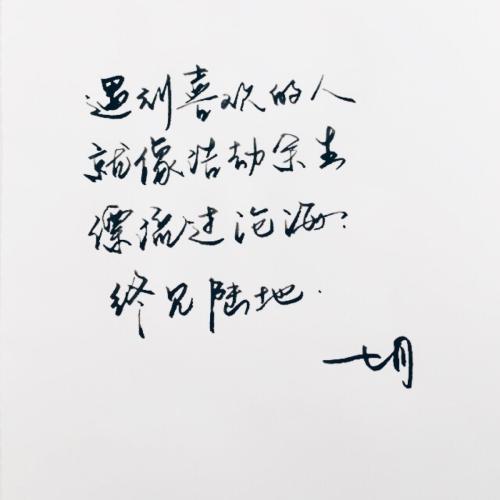 遇到喜欢的人
就像浩劫余生
漂流过沧海
终见陆地.
七月